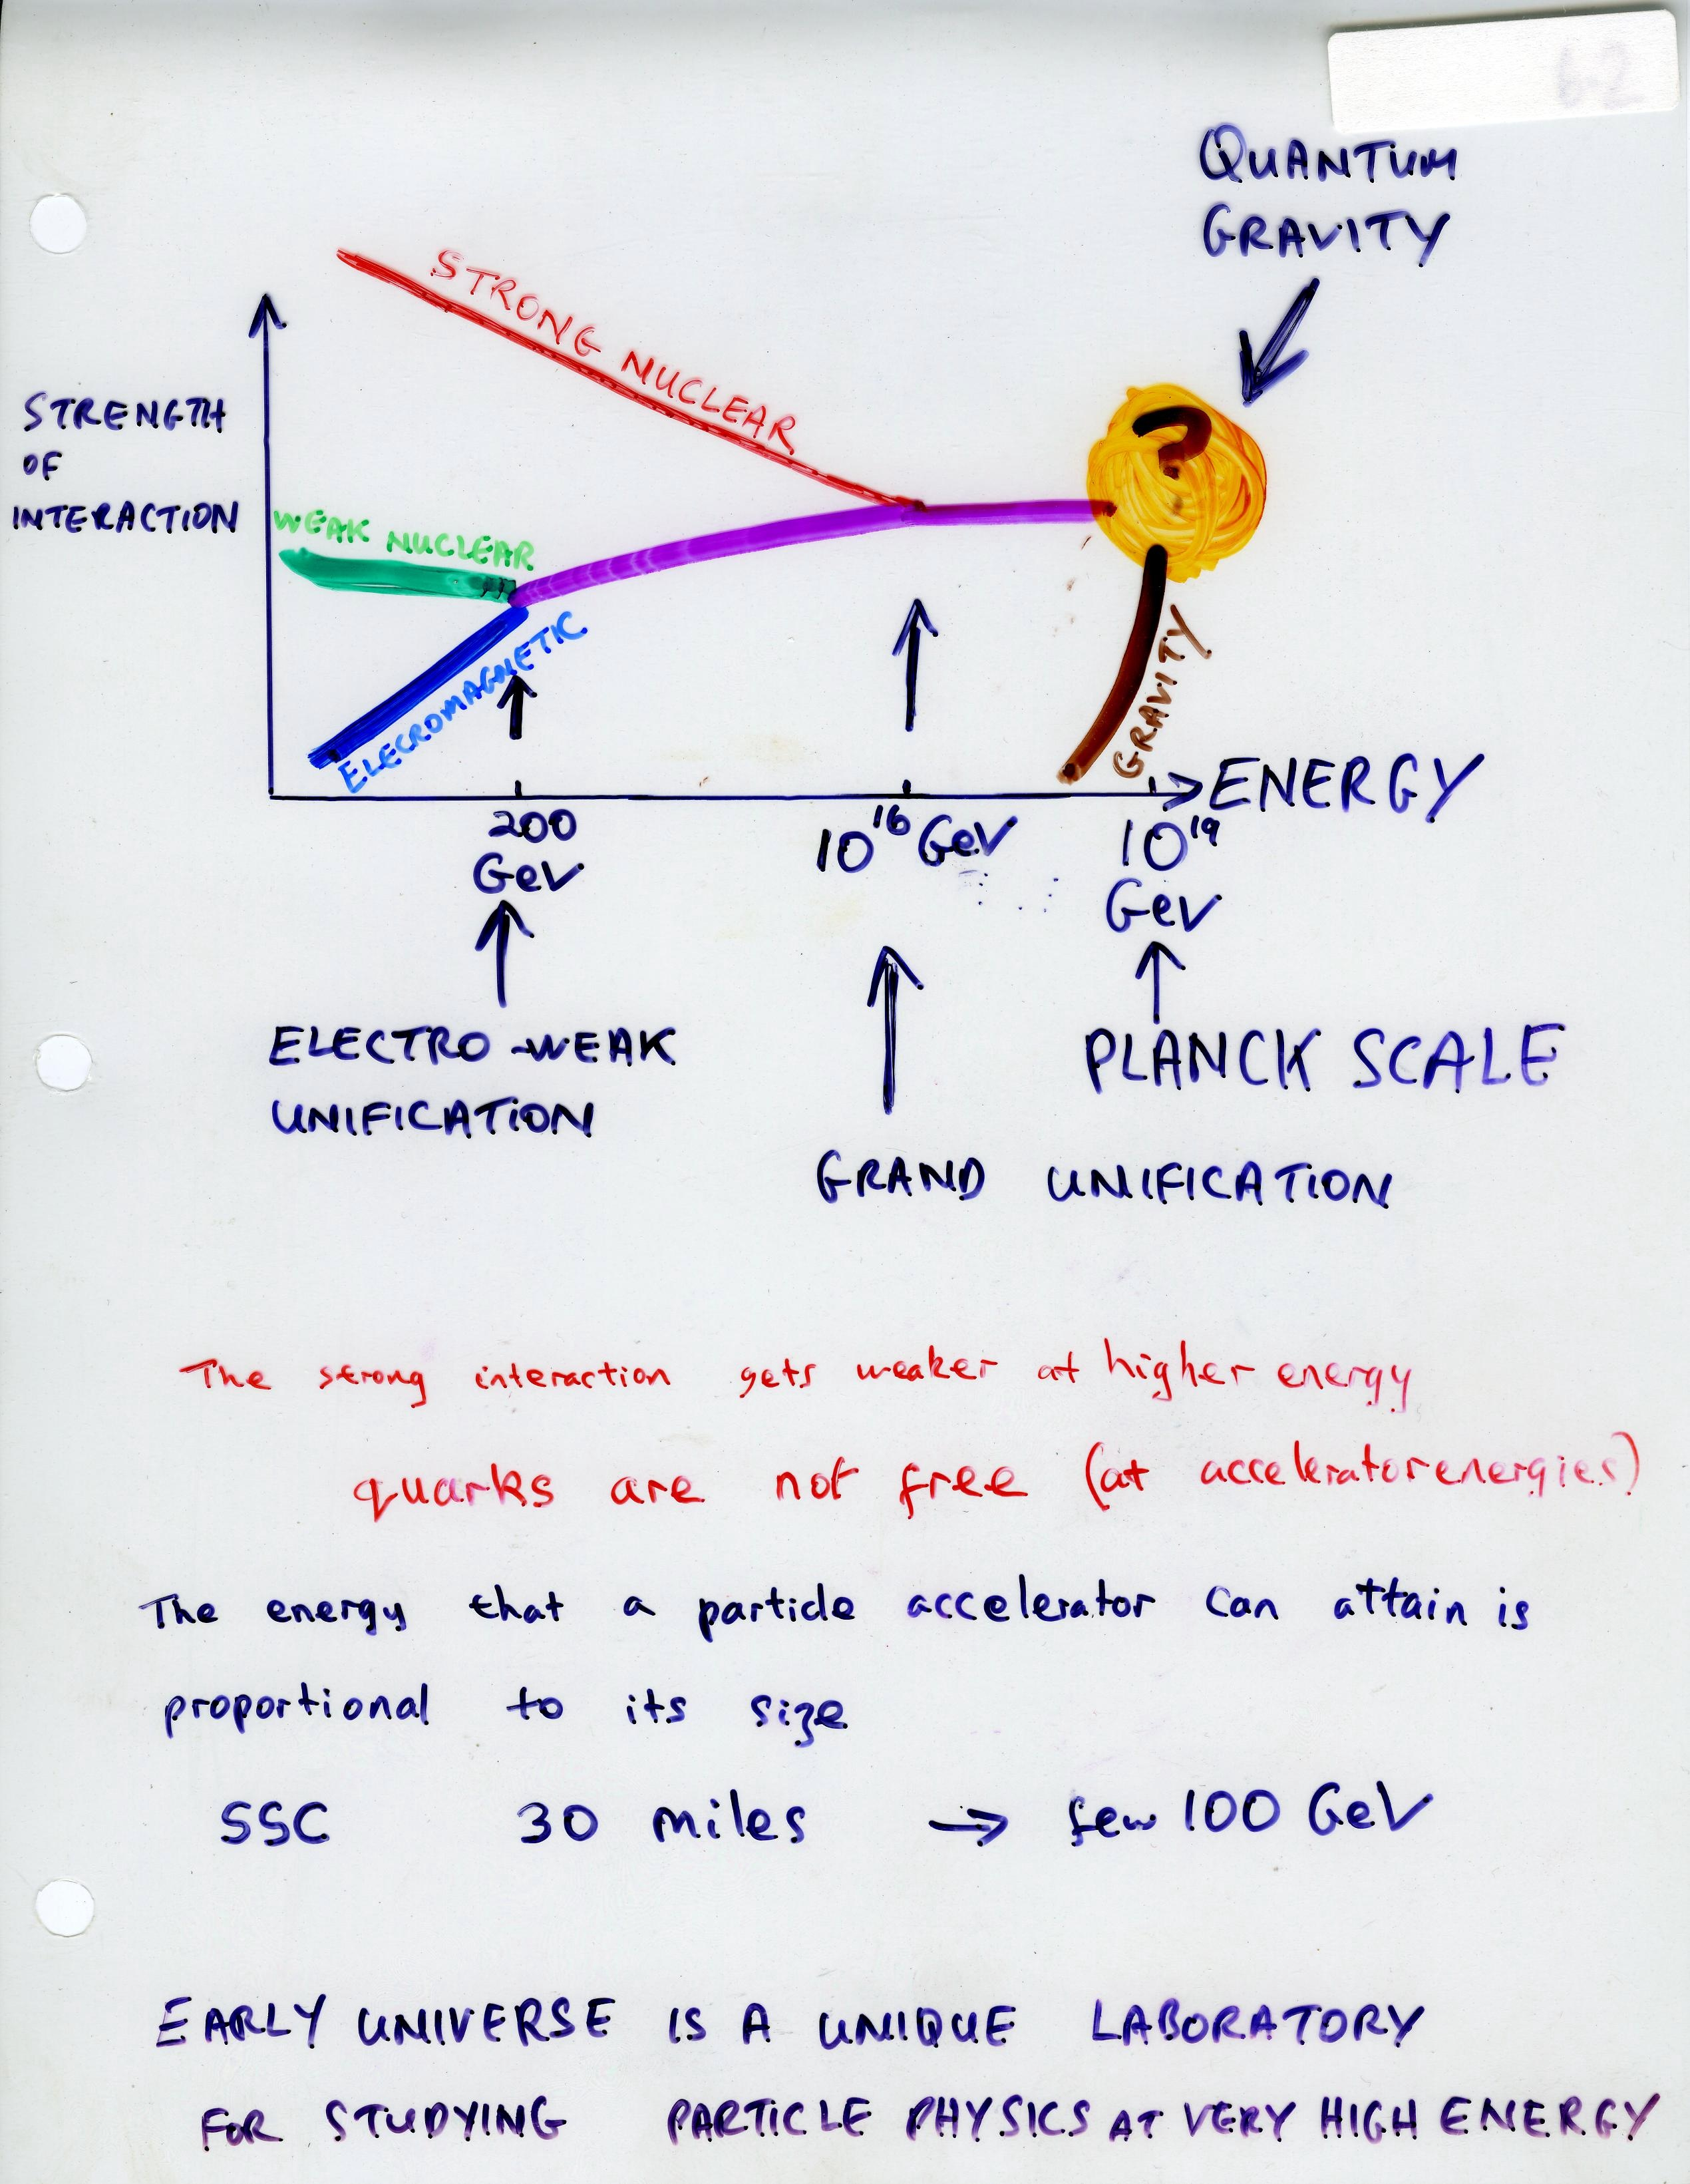 6-2
QUANTUM
GRAVITY
STRONG NUCLEAR
STRENGTH
OF
INTERACTION
?
WEAK NUCLEAR
ELECROMAGNETIC
GRAVITY
ENERGY
200
GeV
10¹⁶ GeV
10¹⁹
GeV
ELECTRO-WEAK
UNIFICATION
PLANCK SCALE
GRAND UNIFICATION
The strong interaction gets weaker at higher energy
quarks are not free (at accelerator energies)
The energy that a particle accelerator can attain is
proportional to its size
SSC 30 miles → few 100 GeV
EARLY UNIVERSE IS A UNIQUE LABORATORY
FOR STUDYING PARTICLE PHYSICS AT VERY HIGH ENERGY